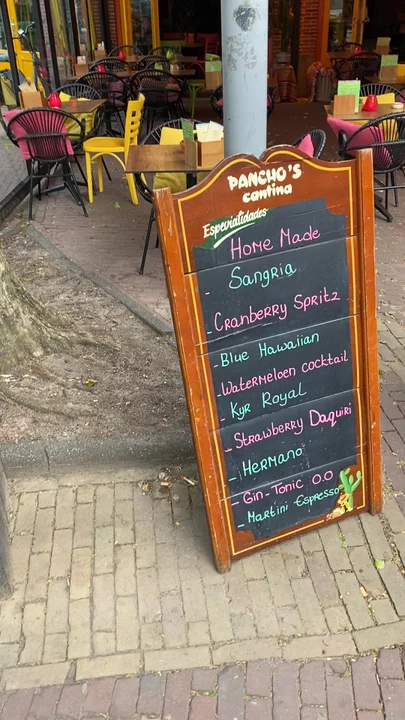 PANCHO'S
cantina
Especialidades
Home Made
- Sangria
- Cranberry Spritz
- Blue Hawaiian
- Watermeloen cocktail
- Kyr Royal
- Strawberry Daquiri
- Hermano
- Gin-Tonic 0.0
- Martini Espresso